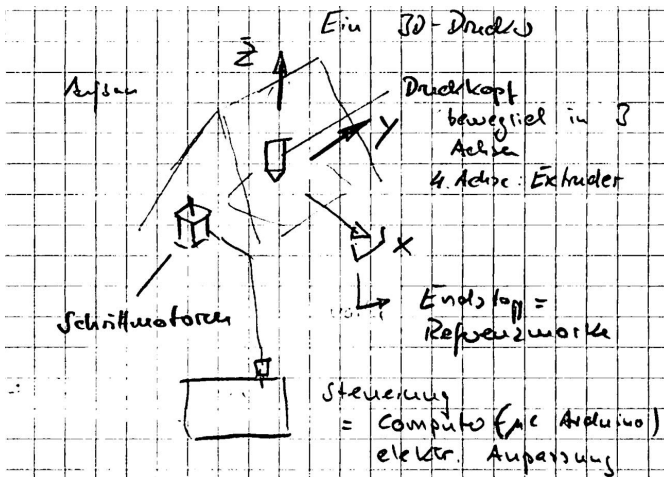 Ein 3D-Drucker
Z
Aufbau
Druckkopf
beweglich in 3
Achsen
4. Achse: Extruder
Y
X
Schrittmotoren
Endstopp =
Referenzmarke
Steuerung
= Computer (µC Arduino)
elektr. Anpassung